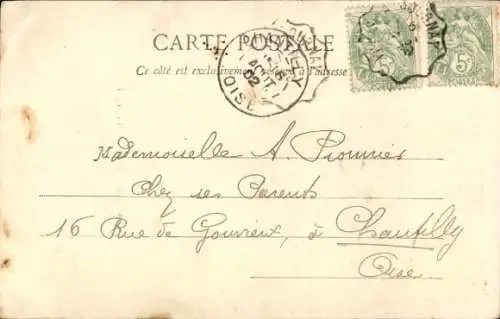 CARTE POSTALE
Ce côté est exclusivement réservé à l'adresse
CHANTILLY
AOUT
02
OISE
5c
5c
Mademoiselle A. Pionnier
Chez ses Parents
16 Rue de Gouvieux, à Chantilly
Oise